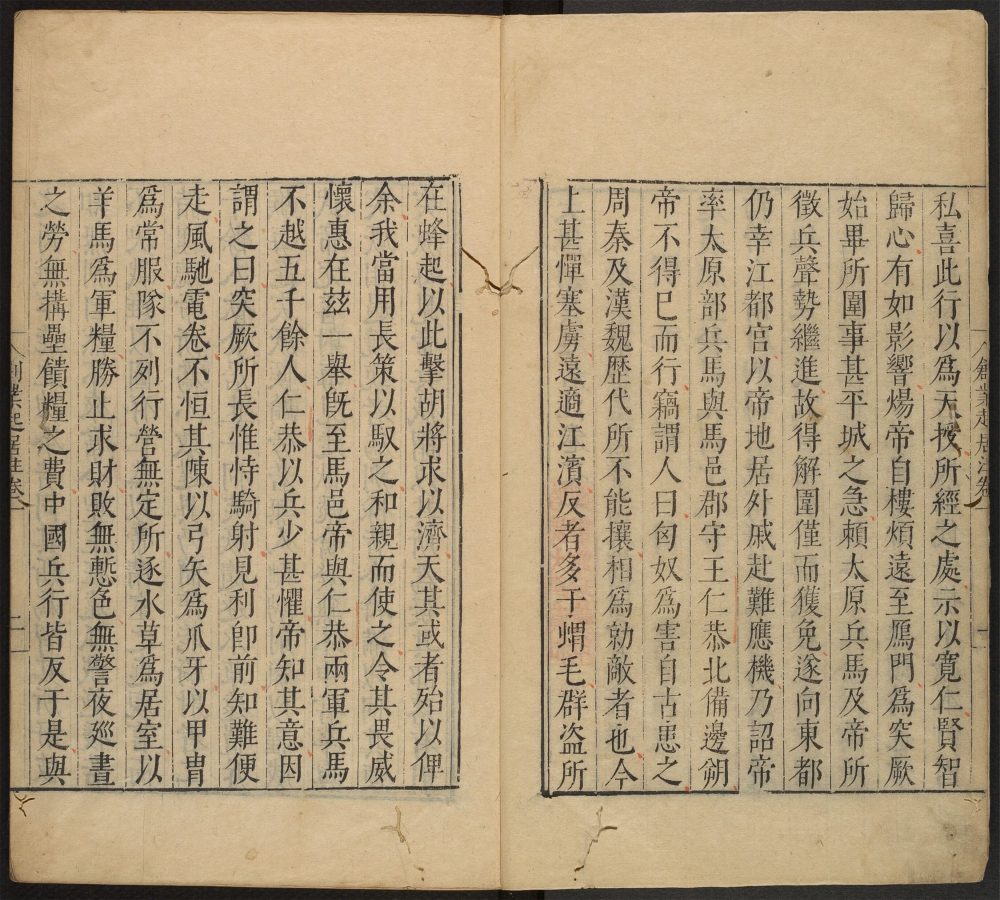 創業起居注卷一
私喜此行以為天授所經之處示以寛仁賢智
歸心有如影響煬帝自樓煩遠至鴈門為突厥
始畢所圍事甚平城之急賴太原兵馬及帝所
徵兵聲勢繼進故得解圍僅而獲免遂向東都
仍幸江都宮以帝地居外戚赴難應機乃詔帝
率太原部兵馬與馬邑郡守王仁恭北備邊朔
帝不得已而行竊謂人曰匈奴為害自古患之
周秦及漢魏歴代所不能攘相為勍敵者也今
上甚憚塞虜遠適江濱反者多于蝟毛群盜所
在蜂起以此擊胡將求以濟天其或者殆以俾
余我當用長策以馭之和親而使之令其畏威
懷惠在玆一舉既至馬邑帝與仁恭兩軍兵馬
不越五千餘人仁恭以兵少甚懼帝知其意因
謂之曰突厥所長惟恃騎射見利即前知難便
走風馳電卷不恒其陳以弓矢為爪牙以甲胄
為常服隊不列行營無定所逐水草為居室以
羊馬為軍糧勝止求財敗無慙色無警夜廵晝
之勞無搆壘饋糧之費中國兵行皆反于是與
創業起居注卷一
二